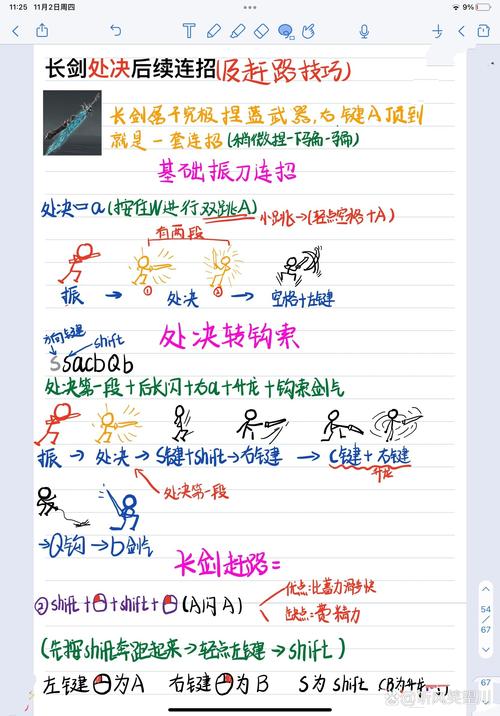 11:25 11月2日周四
9%
长剑处决后续连招(及赶路技巧)
长剑属于究极捏蓝武器,右键A顶到
就是一套连招(稍微捏一下骗一骗)
基础振刀连招
处决一a(按住W进行双跳A)
小跳→(轻点空格+A)
有两段
振 → ① 处决 ② → 空格+左键
处决转钩索
方向键 shift
SsacbQb
处决第一段+后长闪+右a+升龙+钩索剑气
振 → 处决 → S键+shift→右键 → C键+右键
升龙
处决第一段
→Q钩→b剑气
长剑赶路=
②shift++shift+(A闪A)
优点:比蓄力洞步快
缺点:费精力
(先按shift奔跑起来→轻点左键→shift)
左键为A 右键为B S为shift
54
67
67